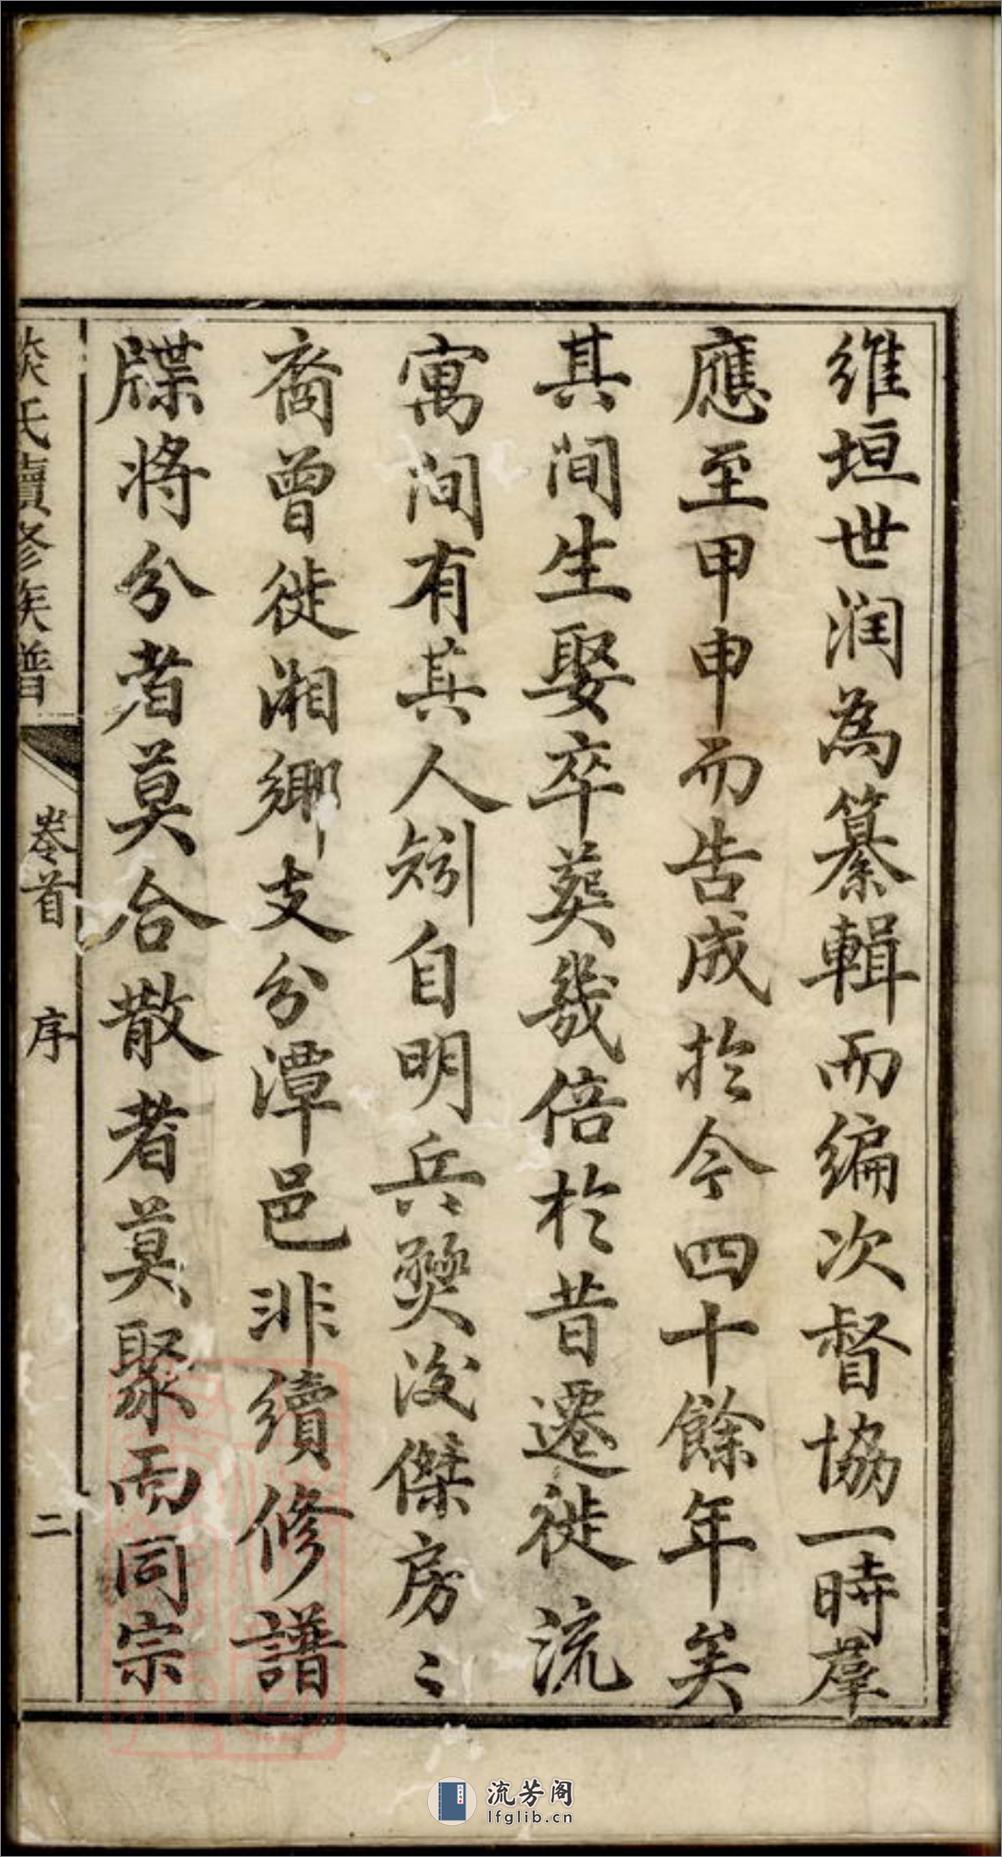 維垣世潤為纂輯而編次督協一時羣
應至甲申而告成於今四十餘年矣
其间生娶卒葬幾倍於昔遷徙流
寓间有其人矧自明兵燹後傑房〻
裔曾徙湘鄉支分潭邑非續修譜
牒將分者莫合散者莫聚而同宗
氏續修族譜
卷首
序
二
流芳阁
lfglib.cn